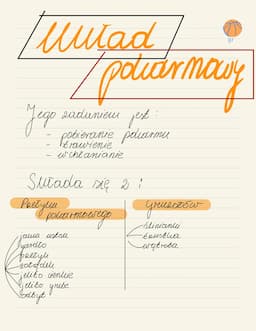 Układ
pokarmowy
Jego zadaniem jest:
- pobieranie pokarmu
- trawienie
- wchłanianie
Składa się z:
Przełyku
pokarmowego
jama ustna
gardło
przełyk
żołądek
jelito cienkie
jelito grube
odbyt
Gruczołów
ślinianki
trzustka
wątroba